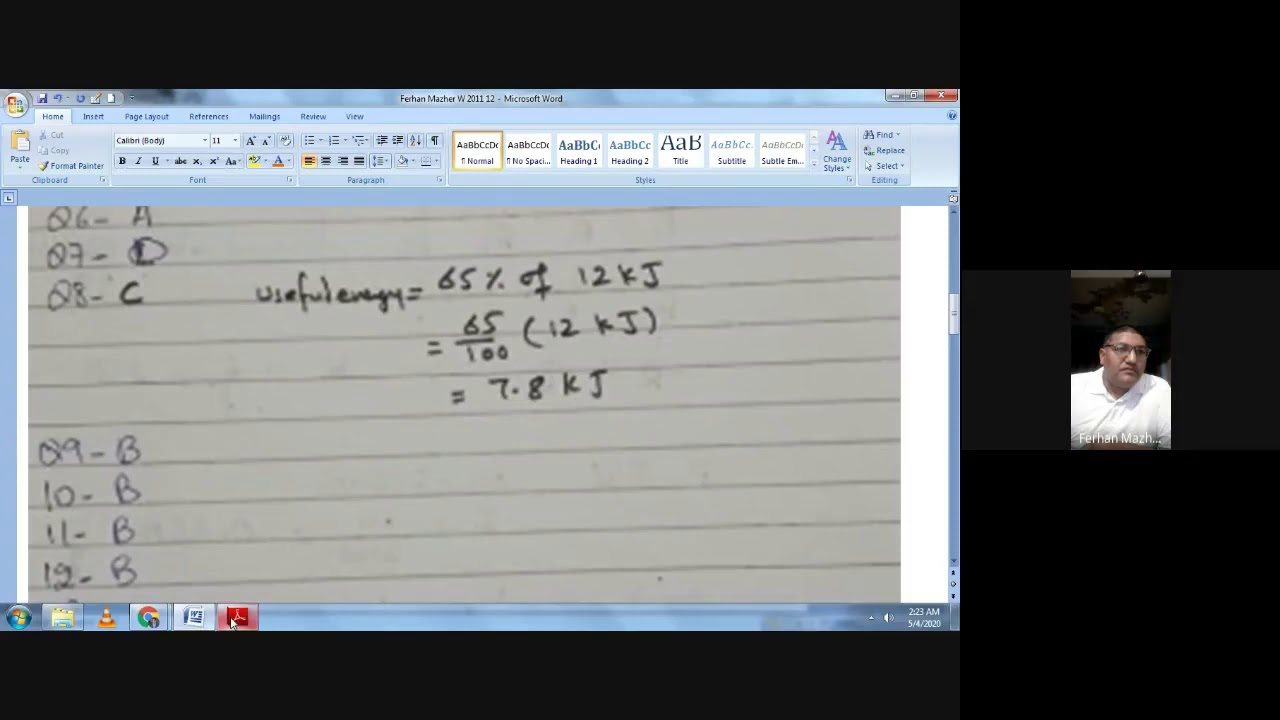 Ferhan Mazher W 2011 12 - Microsoft Word
Home Insert Page Layout References Mailings Review View
Paste
Cut
Copy
Format Painter
Clipboard
Calibri (Body) 11
Font
Paragraph
AaBbCcDc AaBbCcDc AaBbC AaBbCc AaB AaBbCc. AaBbCcDc
¶ Normal ¶ No Spaci... Heading 1 Heading 2 Title Subtitle Subtle Em...
Change Styles
Styles
Find
Replace
Select
Editing
Q6- A
Q7- D
Q8- C
Useful energy = 65 % of 12 kJ
= 65/100 (12 kJ)
= 7.8 kJ
Q9- B
10- B
11- B
12- B
2:23 AM
5/4/2020
Ferhan Mazh...